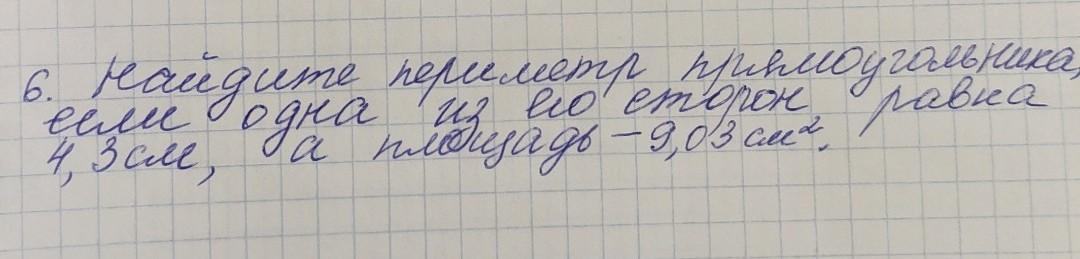 6. Найдите периметр прямоугольника,
если одна из его сторон равна
4,3см, а площадь – 9,03 см².